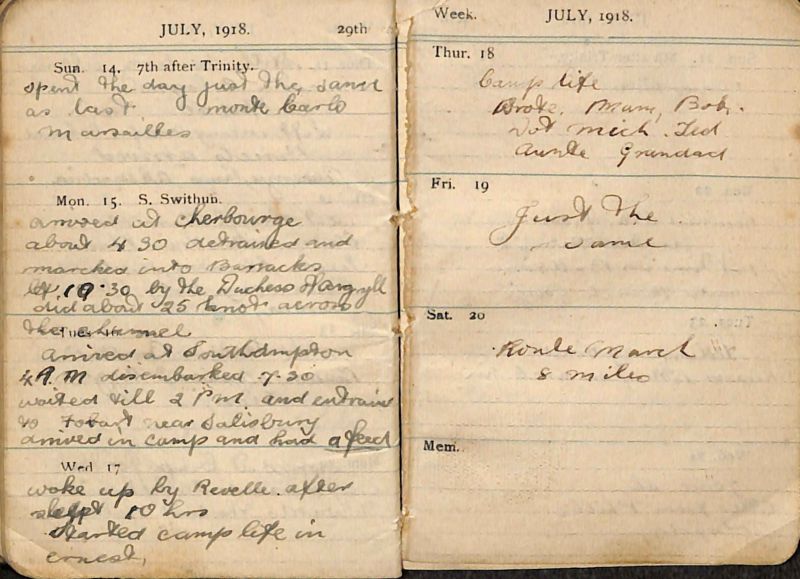 JULY, 1918. 29th
Sun. 14. 7th after Trinity.
spent the day just the same
as last monte Carlo
Marsailles
Mon. 15. S. Swithun.
arrived at Cherbourge
about 4 30 detrained and
marched into Barracks
left 10.30 by the Duchess of argyll
did about 25 knots across
the channel
Tues. 16
arrived at Southampton
4 A.M disembarked 7.30
waited till 2 PM and entrain
to near Salisbury
arrived in camp and had a feed
Wed 17
woke up by Revelle after
slept 10 hrs
Started camp life in
ernest,
Week. JULY, 1918.
Thur. 18
Camp life
Wrote, Mum, Bob.
Dot Mich. Ted
Auntie Grandad
Fri. 19
Just the
same
Sat. 20
Route March
8 miles
Mem.